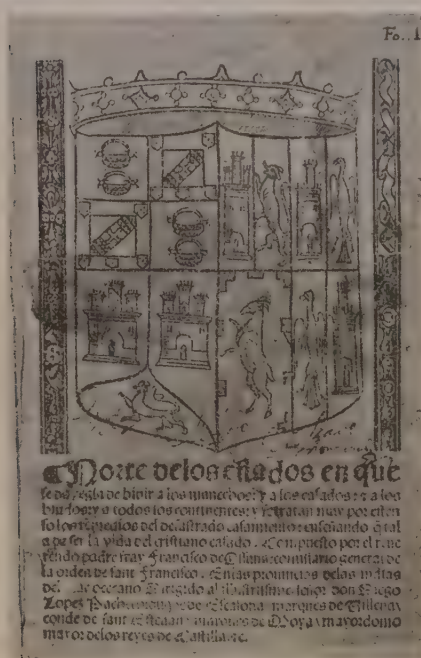 Fo.. I
Norte delos estados en que
se da regla de biuir a los mancebos: y a los casados: y a los
biudos: y a todos los continentes: y se tratan muy por esten
so los remedios del desastrado casamiento: enseñando q̃ tal
a de ser la vida del cristiano casado. Compuesto por el reue
rendo padre fray Francisco de Osuna comissario general de
la orden de sant Francisco. Enlas prouincias delas indias
del mar oceano Dirigido al illustrissimo señor don Diego
Lopez Pacheco de Escalona marques de Villena y
conde de sant Esteuan marques de Moya y mayordomo
mayor delos reyes de Castilla. rc.